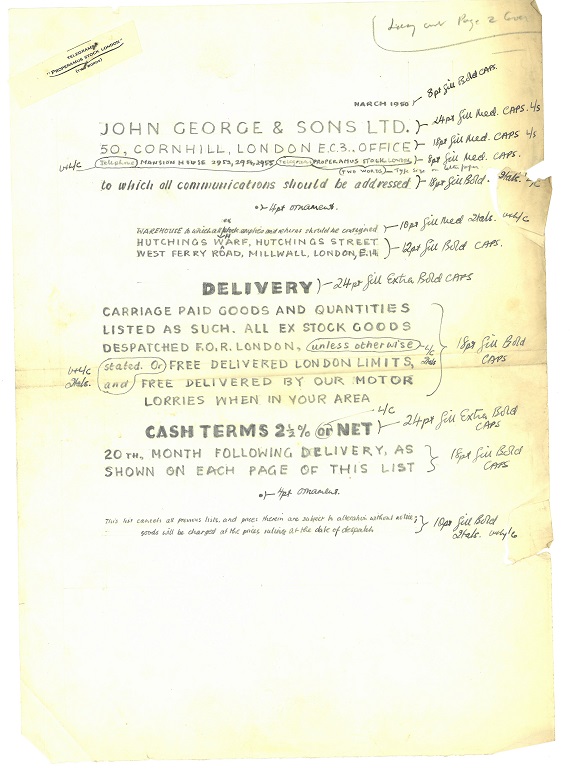 Page 2 Cover
TELEGRAMS
"PROPERAMUS STOCK LONDON"
(TWO WORDS)
MARCH 1950 8pt Gill Bold CAPS.
JOHN GEORGE & SONS LTD. 24pt Gill Med. CAPS. L/S
50, CORNHILL, LONDON E.C.3. OFFICE 18pt Gill Med. CAPS L/S
u+l/c Telephone MANSION HOUSE 2953, 2954, 2955 Telegrams PROPERAMUS STOCK LONDON 8pt Gill Med. CAPS.
(TWO WORDS) Type size
to which all communications should be addressed 18pt Gill Bold. Itals. L/C
4pt ornament.
WAREHOUSE to which all samples and returns should be consigned 10pt Gill Med Itals. u+l/c
HUTCHINGS WARF, HUTCHINGS STREET H
WEST FERRY ROAD, MILLWALL, LONDON, E.14 12pt Gill Bold CAPS.
DELIVERY 24pt Gill Extra Bold CAPS
CARRIAGE PAID GOODS AND QUANTITIES
LISTED AS SUCH. ALL EX STOCK GOODS
DESPATCHED F.O.R. LONDON, unless otherwise L/C Itals 18pt Gill Bold CAPS
u+l/c Itals. stated. Or FREE DELIVERED LONDON LIMITS,
and FREE DELIVERED BY OUR MOTOR
LORRIES WHEN IN YOUR AREA
L/C
CASH TERMS 2½% or NET 24pt Gill Extra Bold CAPS
20TH, MONTH FOLLOWING DELIVERY, AS
SHOWN ON EACH PAGE OF THIS LIST 18pt Gill Bold CAPS
4pt ornament.
This list cancels all previous lists, and prices therein are subject to alteration without notice; 10pt Gill Bold
goods will be charged at the prices ruling at the date of despatch Itals. u+l/c